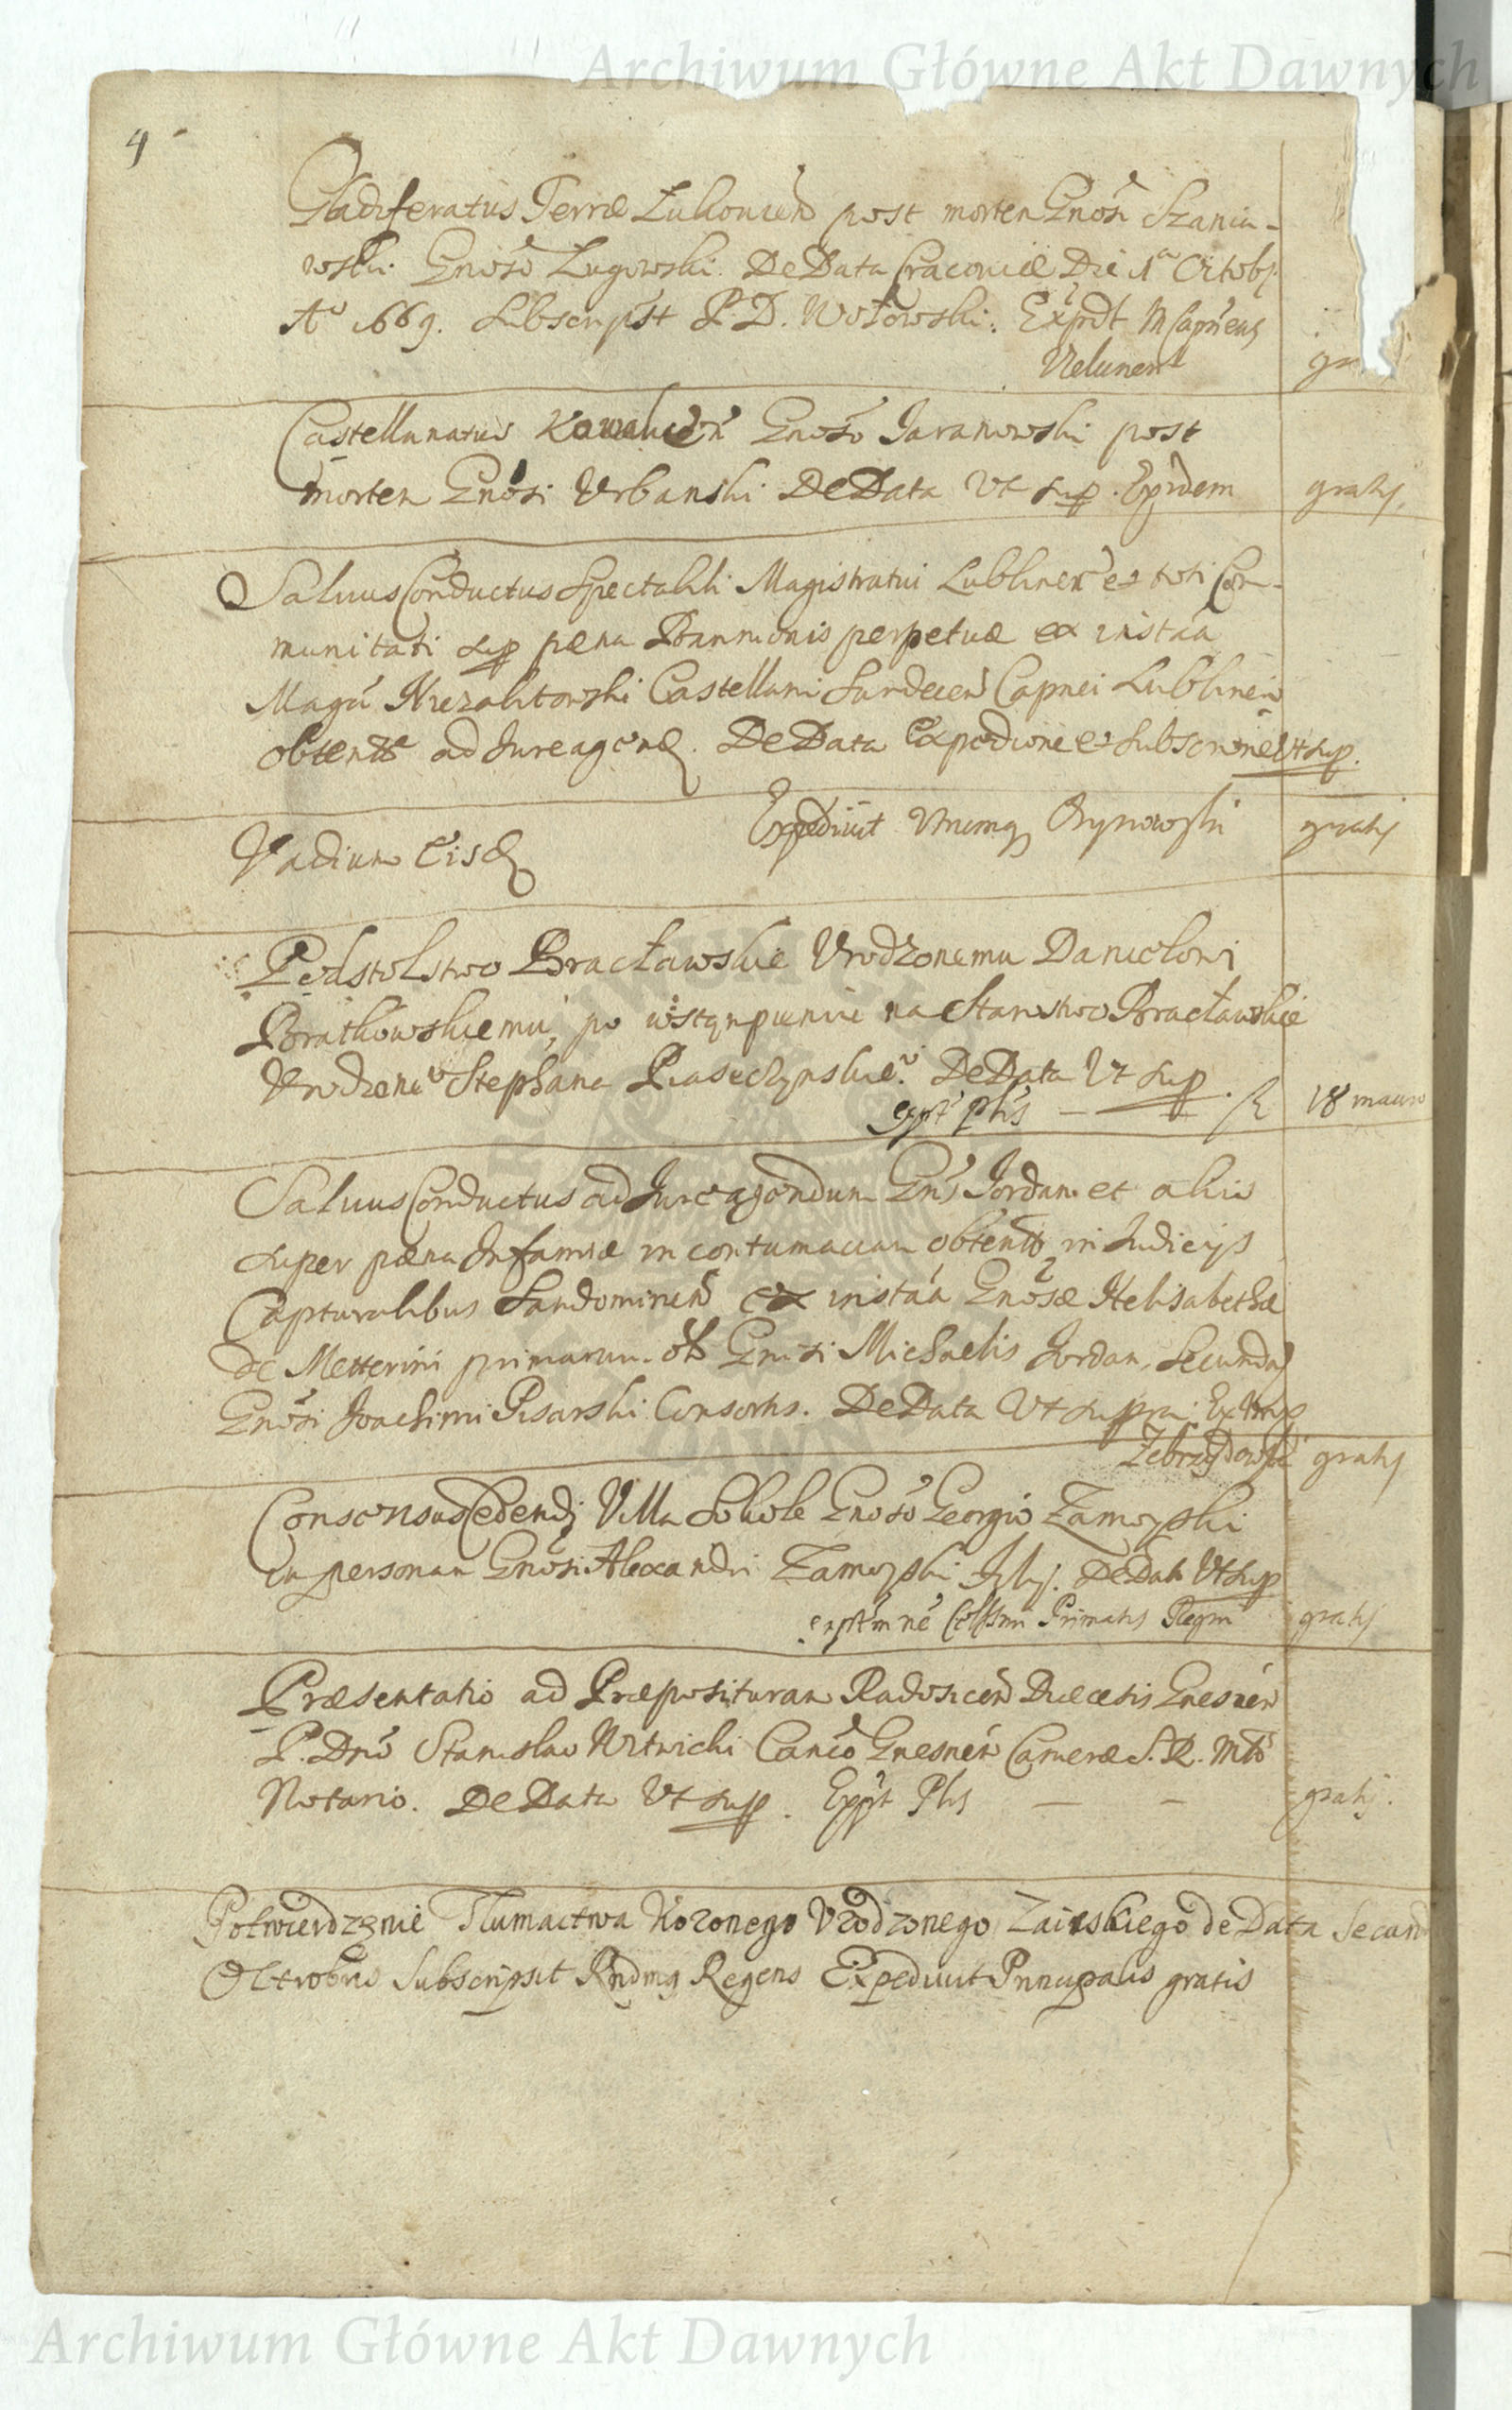 Archiwum Główne Akt Dawnych
4
Gladiferatus Terræ Lukoviens post mortem Gnosi Szaniaw-
wski Gnoso Lugowski. De Data Cracoviæ Die 1a Octobr
Ao 1669. Subscripst P. D. Wołowski. Expdt M Capneus
Velunens gra
Castellanatus Kowaliens Gnoso Jaranowski post
mortem Gnosi Urbanski De Data Ut sup. Ex idem gratis.
Salvus Conductus Spectabili Magistratui Lublinen et toti Com-
munitati sup pæna Bannitionis perpetuæ ex instãa
Magci Niezabitowski Castellani Capnei Lublinen
obtentæ ad Jure agend. De Data Expeditione et Subscrione Ut sup.
Expediuit gratis
Vadium Eisd
Podstolstwo Bracławskie Vrodzonemu Danielowi
Bratkowskiemu, po wstąpieniu na Starostwo Bracławskie
Vrodzone Stephana Piaseczynskie. De Data Ut sup.
expt Plis — 18
Salvus Conductus ad Jure agendum Gns Jordan et aliis
super pæna Infamiæ in contumaciam obtent in Judicijs
Capturalibus Sandomirien ex instãa Gnosæ Helisabethæ
de primarum. olim Gnosi Michaelis Jordan, Secundar
Gnosi Joachimi Pisarski Consortis. De Data Ut supra.
Zebrzydowski gratis
Consensus Cedendi Villa Sokole Gnoso Georgio Zamoyski
in personam Gnosi Alexandri Zamoyski De Data Ut sup
Celssmi Primatis Regni gratis
Præsentatio ad Præposituram Radosicen Diæcesis Gnesnen
P. Dno Stanislao Witwicki Canco Gnesnen Cameræ S. R. Mtis
Notario. De Data Ut sup. Expt Plis — — gratis.
Potwierdzęnie Tlumactwa Koronego Vrodzonego de Data Secund
Octobris Subscripsit Rndmg Regens Expediuit Principalis gratis
Archiwum Główne Akt Dawnych